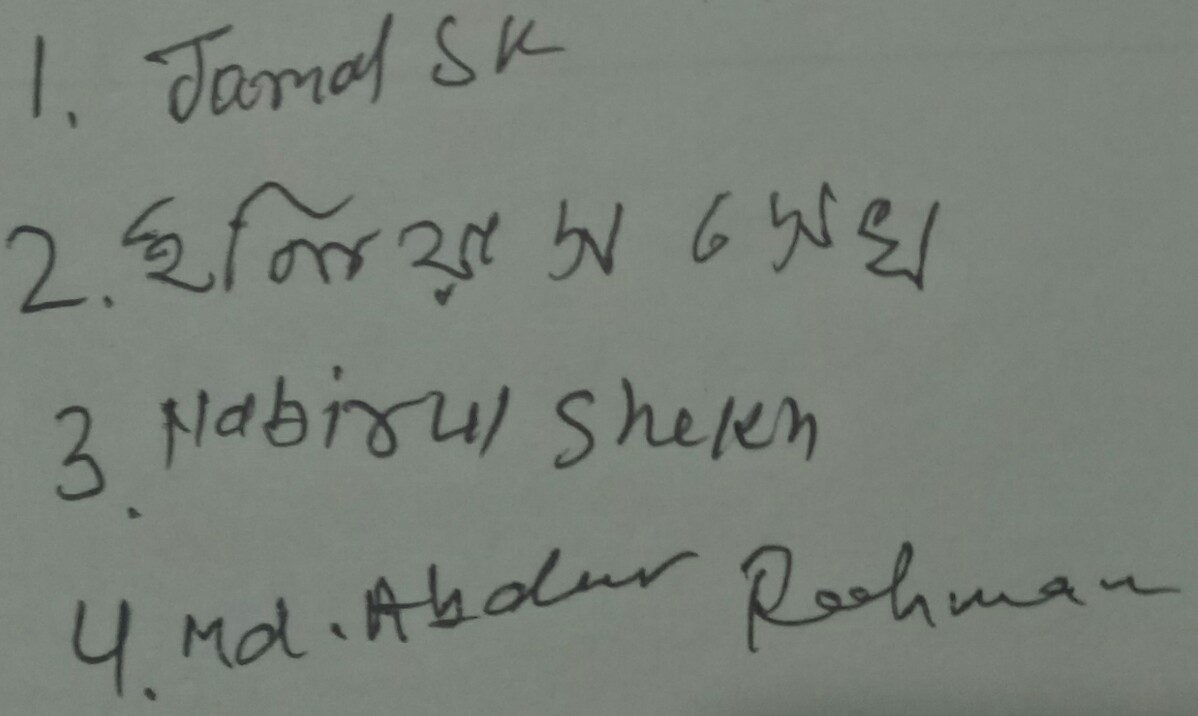 1. Jamal SK
2. ইলিয়াস সেখ
3. Nabirul Shekh
4. Md. Abdur Roohman